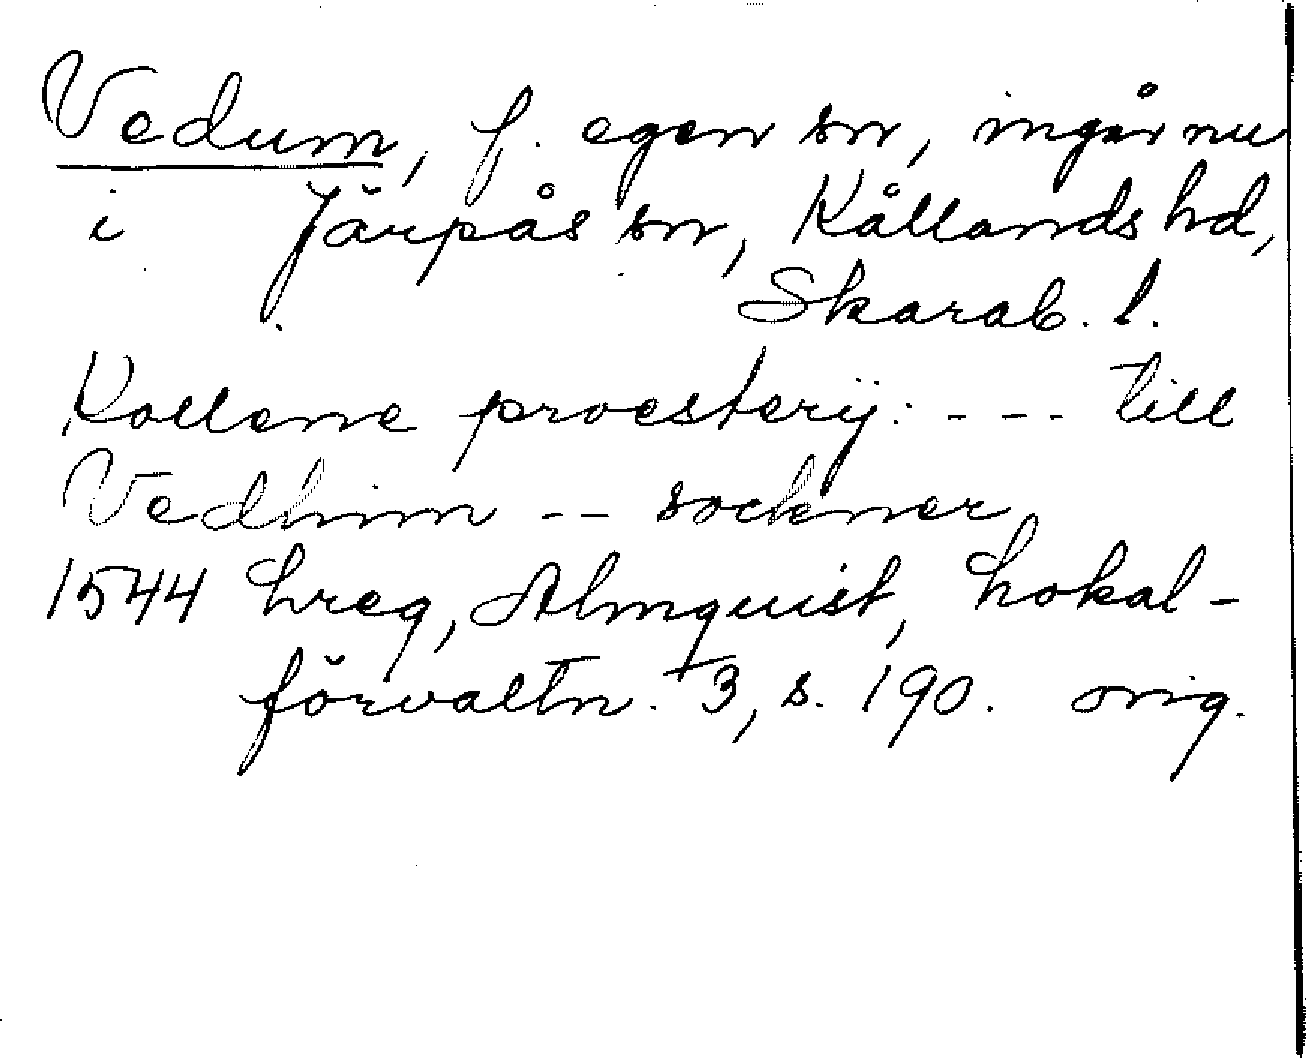 Vedum, f. egen sn, ingår nu
i Järpås sn, Kållands hd,
Skarab. l.
Kollene proesterij: --- till
Vedhim -- sockner
1544 Lreg, Almquist, Lokal-
förvaltn. 3, s. 190. orig.